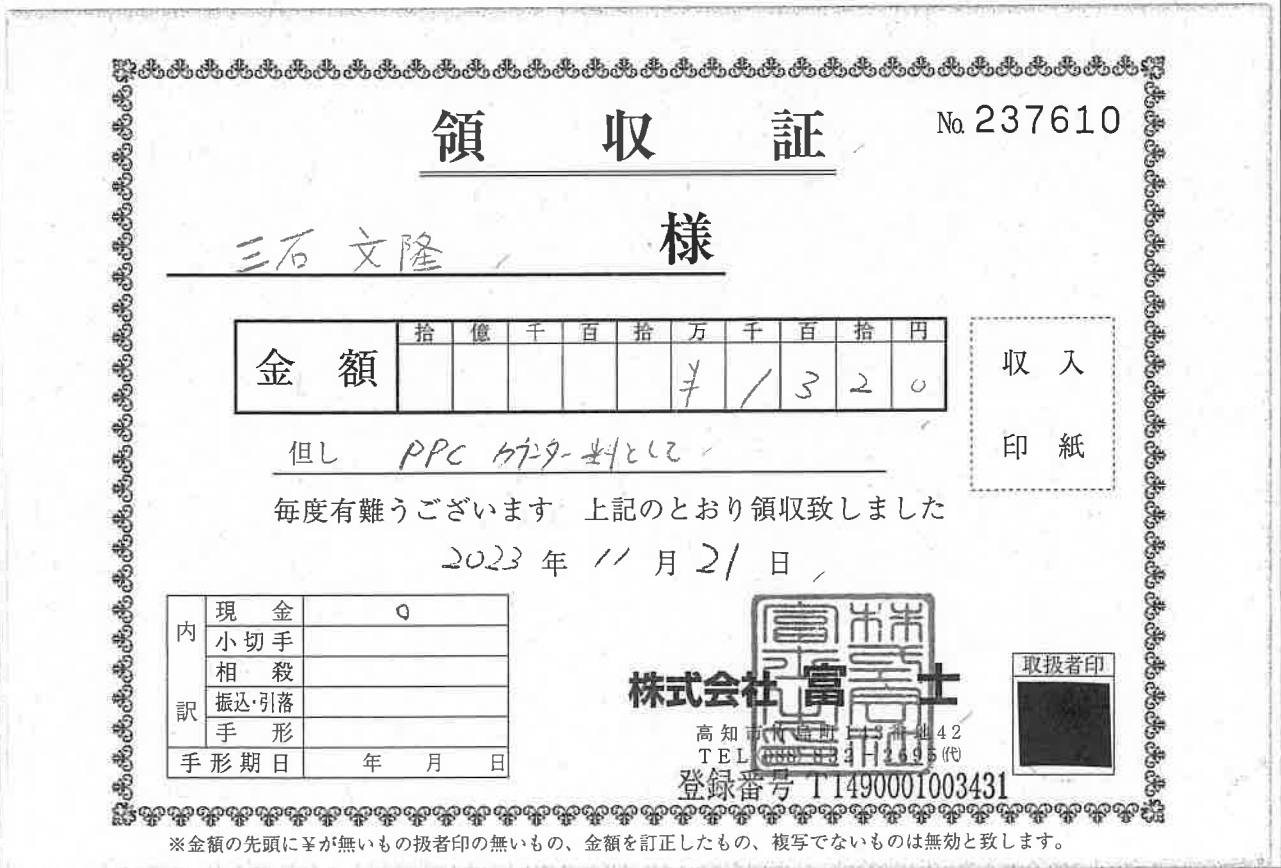 領収証
No. 237610
三石 文隆 様
金額
拾 億 千 百 拾 万 千 百 拾 円
¥ 1 3 2 0
収入
印紙
但し PPC カウンター料として
毎度有難うございます 上記のとおり領収致しました
2023 年 11 月 21 日
内訳
現金 0
小切手
相殺
振込・引落
手形
手形期日 年 月 日
株式会社 富士
取扱者印
高知市竹島町143番地42
TEL(088)832-2695(代)
登録番号 T1490001003431
※金額の先頭に¥が無いもの扱者印の無いもの、金額を訂正したもの、複写でないものは無効と致します。